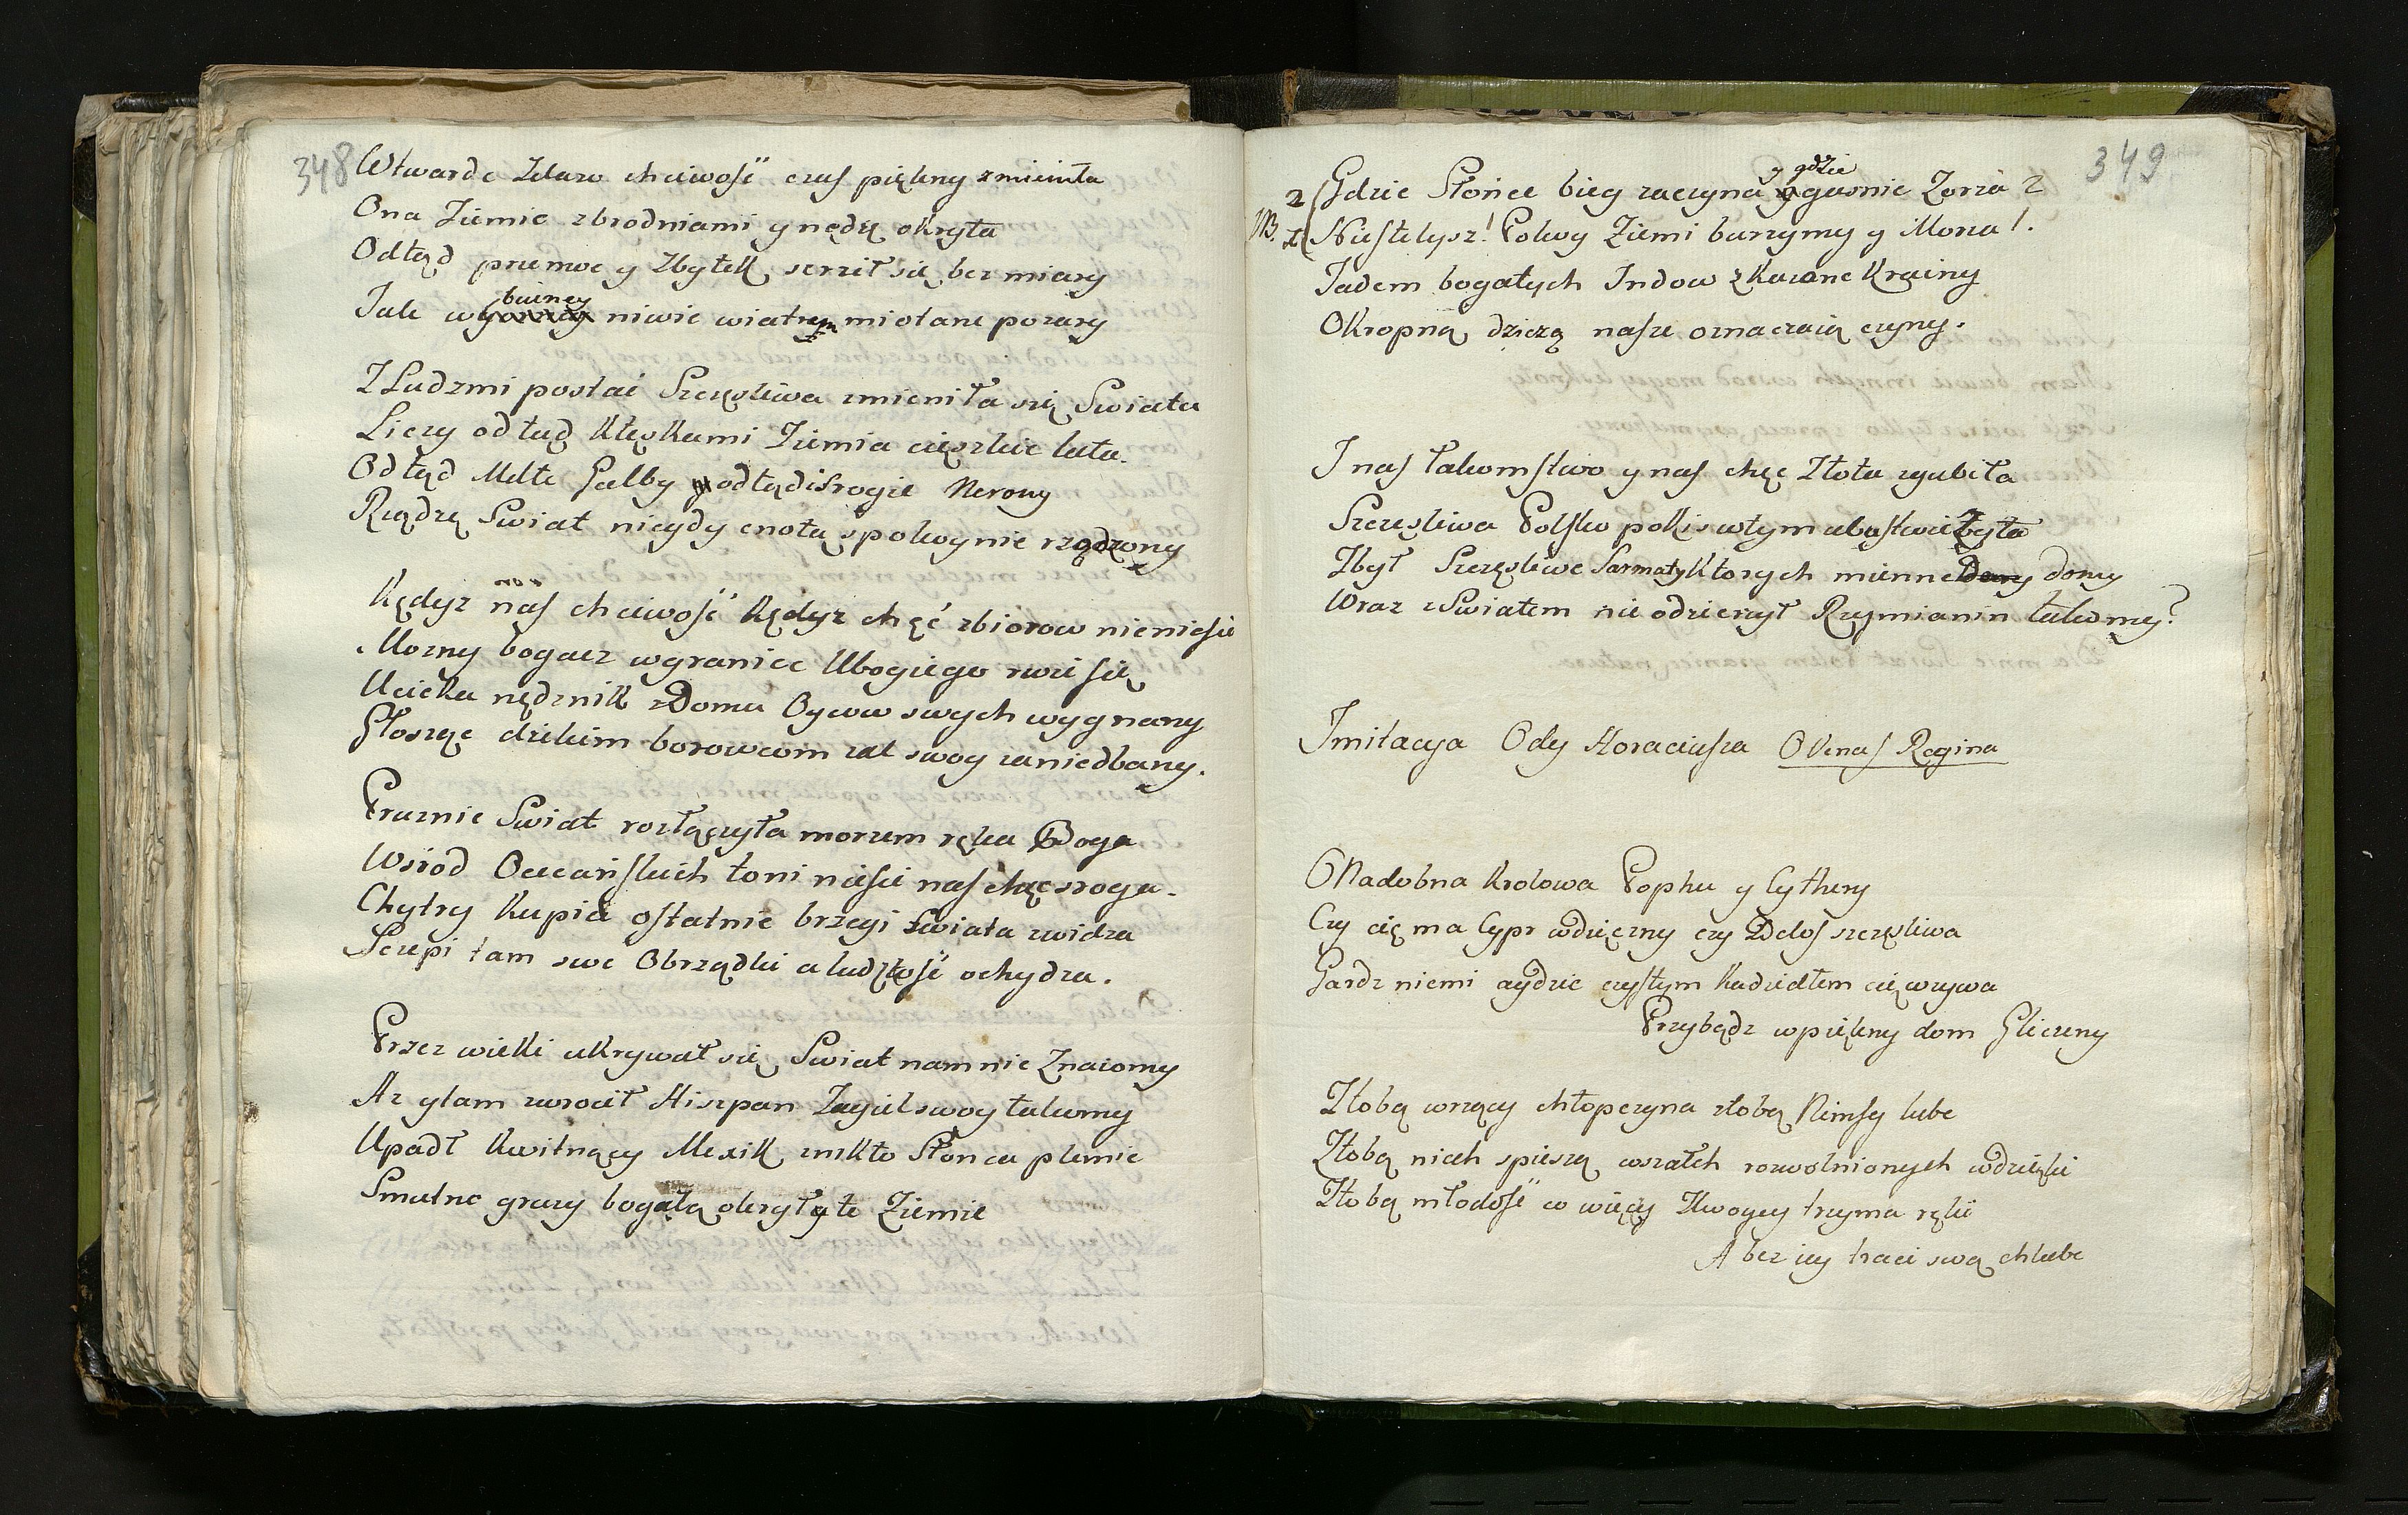 348
Wtwarde Zelazo chciwość czas piękny zmieniła
Ona Ziemie zbrodniami y nędzą okryła
Odtąd przemoc y Zbytek szerził się bez miary
Jak w buiney niwie wiatrem miotane pozary
Z Ludzmi postać Szczęsliwa zmieniła się Swiata
Liczy odtąd klęskami Ziemia cięszkie lata.
Odtąd Mdłe Galby odtąd Srogie Nerony
Rządzą Swiat niegdy cnotą spokoynie rządzony
Kędyz nas chciwość kędyz chęć zbiorow nieniesie
Mozny bogacz wgranice Ubogiego rwie się
Ucieka nędznik z Domu Oycow swych wygnany
Głosząc dzikim borowcom zal swoy zaniedbany.
Proznie Swiat rozłączyła morzem ręka Boga
Wsrod Oceańskich toni niesie nas chęć sroga.
Chytry kupiec ostatnie brzegi swiata zwidza
Sczepi tam swe Obrządki a ludzkość ochydza.
Przez wieki ukrywał się Swiat nam nie Znaiomy
Az y tam zwrocił Hiszpan Zagiel swoy łakomy
Upadł kwitnący Mexik znikło Słonca plemie
Smutne gruzy bogatą okryły te Ziemie
349
y gdzie
2 Gdzie Słońce bieg zaczyna gasnie Zorza?
NB. 1 Niestetysz! Polwy Ziemi burzymy y Morza!
Jadem bogatych Indow zkazone Krainy
Okropną dziczą nasze oznaczaią czyny.
I nas łakomstwo y nas chęc Złota zgubiła
Szczęsliwa Polsko pokis wtym ubustwie była
Zbyt Szczęsliwe Sarmaty ktorych mienne domy
Wraz z Swiatem nie odzierzył Rzymianin łakomy?
Imitacya Ody Horaciusza O Venus Regina
O Nadobna Krolowa Pophu y Cythery
Czy cię ma Cypr wdzięczny czy Delos szczęsliwa
Gardz niemi a gdzie czystym kadzidłem cię wzywa
Przybądz wpiękny dom Gliczery
Ztobą wrzący chłopczyna ztobą Nimfy lube
Ztobą niech spieszą wszatch rozwolnionych wdzięki
Ztobą młodość co więcy Ztwoyey trzyma ręki
A bez iey traci swą chlube